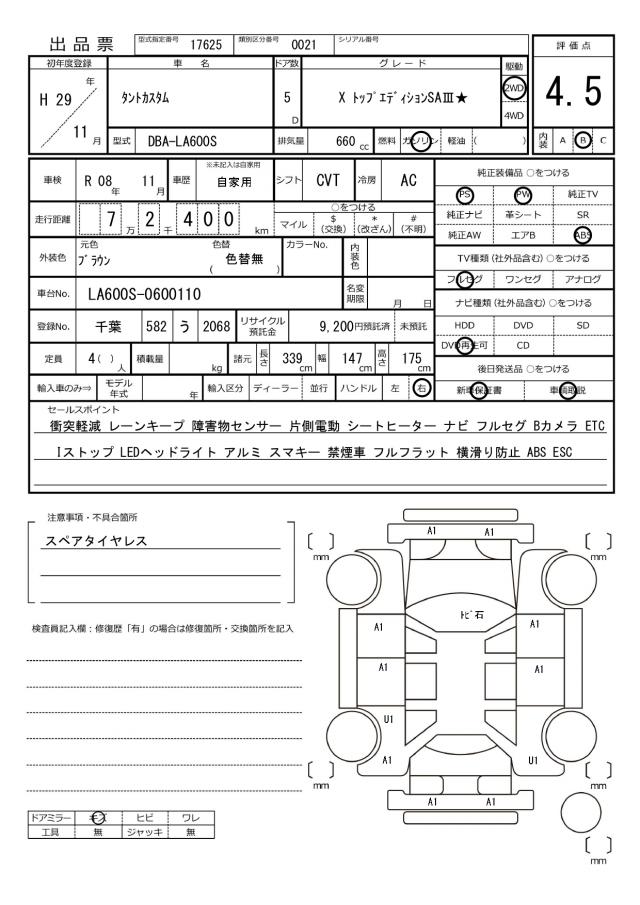 出品票 型式指定番号 17625 類別区分番号 0021 シリアル番号
評価点
4.5
内装 A B C
初年度登録 車名 ドア数 グレード 駆動
H 29 年 11 月 タントカスタム 5 D X トップエディションSAⅢ★ 2WD 4WD
型式 DBA-LA600S 排気量 660 cc 燃料 ガソリン 軽油 ( )
車検 R 08 年 11 月 車歴 ※未記入は自家用 自家用 シフト CVT 冷房 AC
走行距離 7 2 4 0 0 万 千 km
○をつける
マイル $ (交換) * (改ざん) # (不明)
外装色 元色 ブラウン 色替 ( 色替無 ) カラーNo. 内装色
車台No. LA600S-0600110 名変期限 月 日
登録No. 千葉 582 う 2068 リサイクル預託金 9,200円預託済 未預託
定員 4( ) 人 積載量 kg 諸元 長さ 339 cm 幅 147 cm 高さ 175 cm
輸入車のみ⇒ モデル年式 年 輸入区分 ディーラー 並行 ハンドル 左 右
純正装備品 ○をつける
PS PW 純正TV
純正ナビ 革シート SR
純正AW エアB ABS
TV種類(社外品含む) ○をつける
フルセグ ワンセグ アナログ
ナビ種類(社外品含む) ○をつける
HDD DVD SD
DVD再生可 CD
後日発送品 ○をつける
新車保証書 車輌取説
セールスポイント
衝突軽減 レーンキープ 障害物センサー 片側電動 シートヒーター ナビ フルセグ Bカメラ ETC
Iストップ LEDヘッドライト アルミ スマキー 禁煙車 フルフラット 横滑り防止 ABS ESC
注意事項・不具合箇所
スペアタイヤレス
検査員記入欄：修復歴「有」の場合は修復箇所・交換箇所を記入
ドアミラー キズ ヒビ ワレ
工具 無 ジャッキ 無
A1 A1
mm mm
トビ石
A1 A1
A1 A1
U1
A1 U1
mm mm
A1 A1
mm